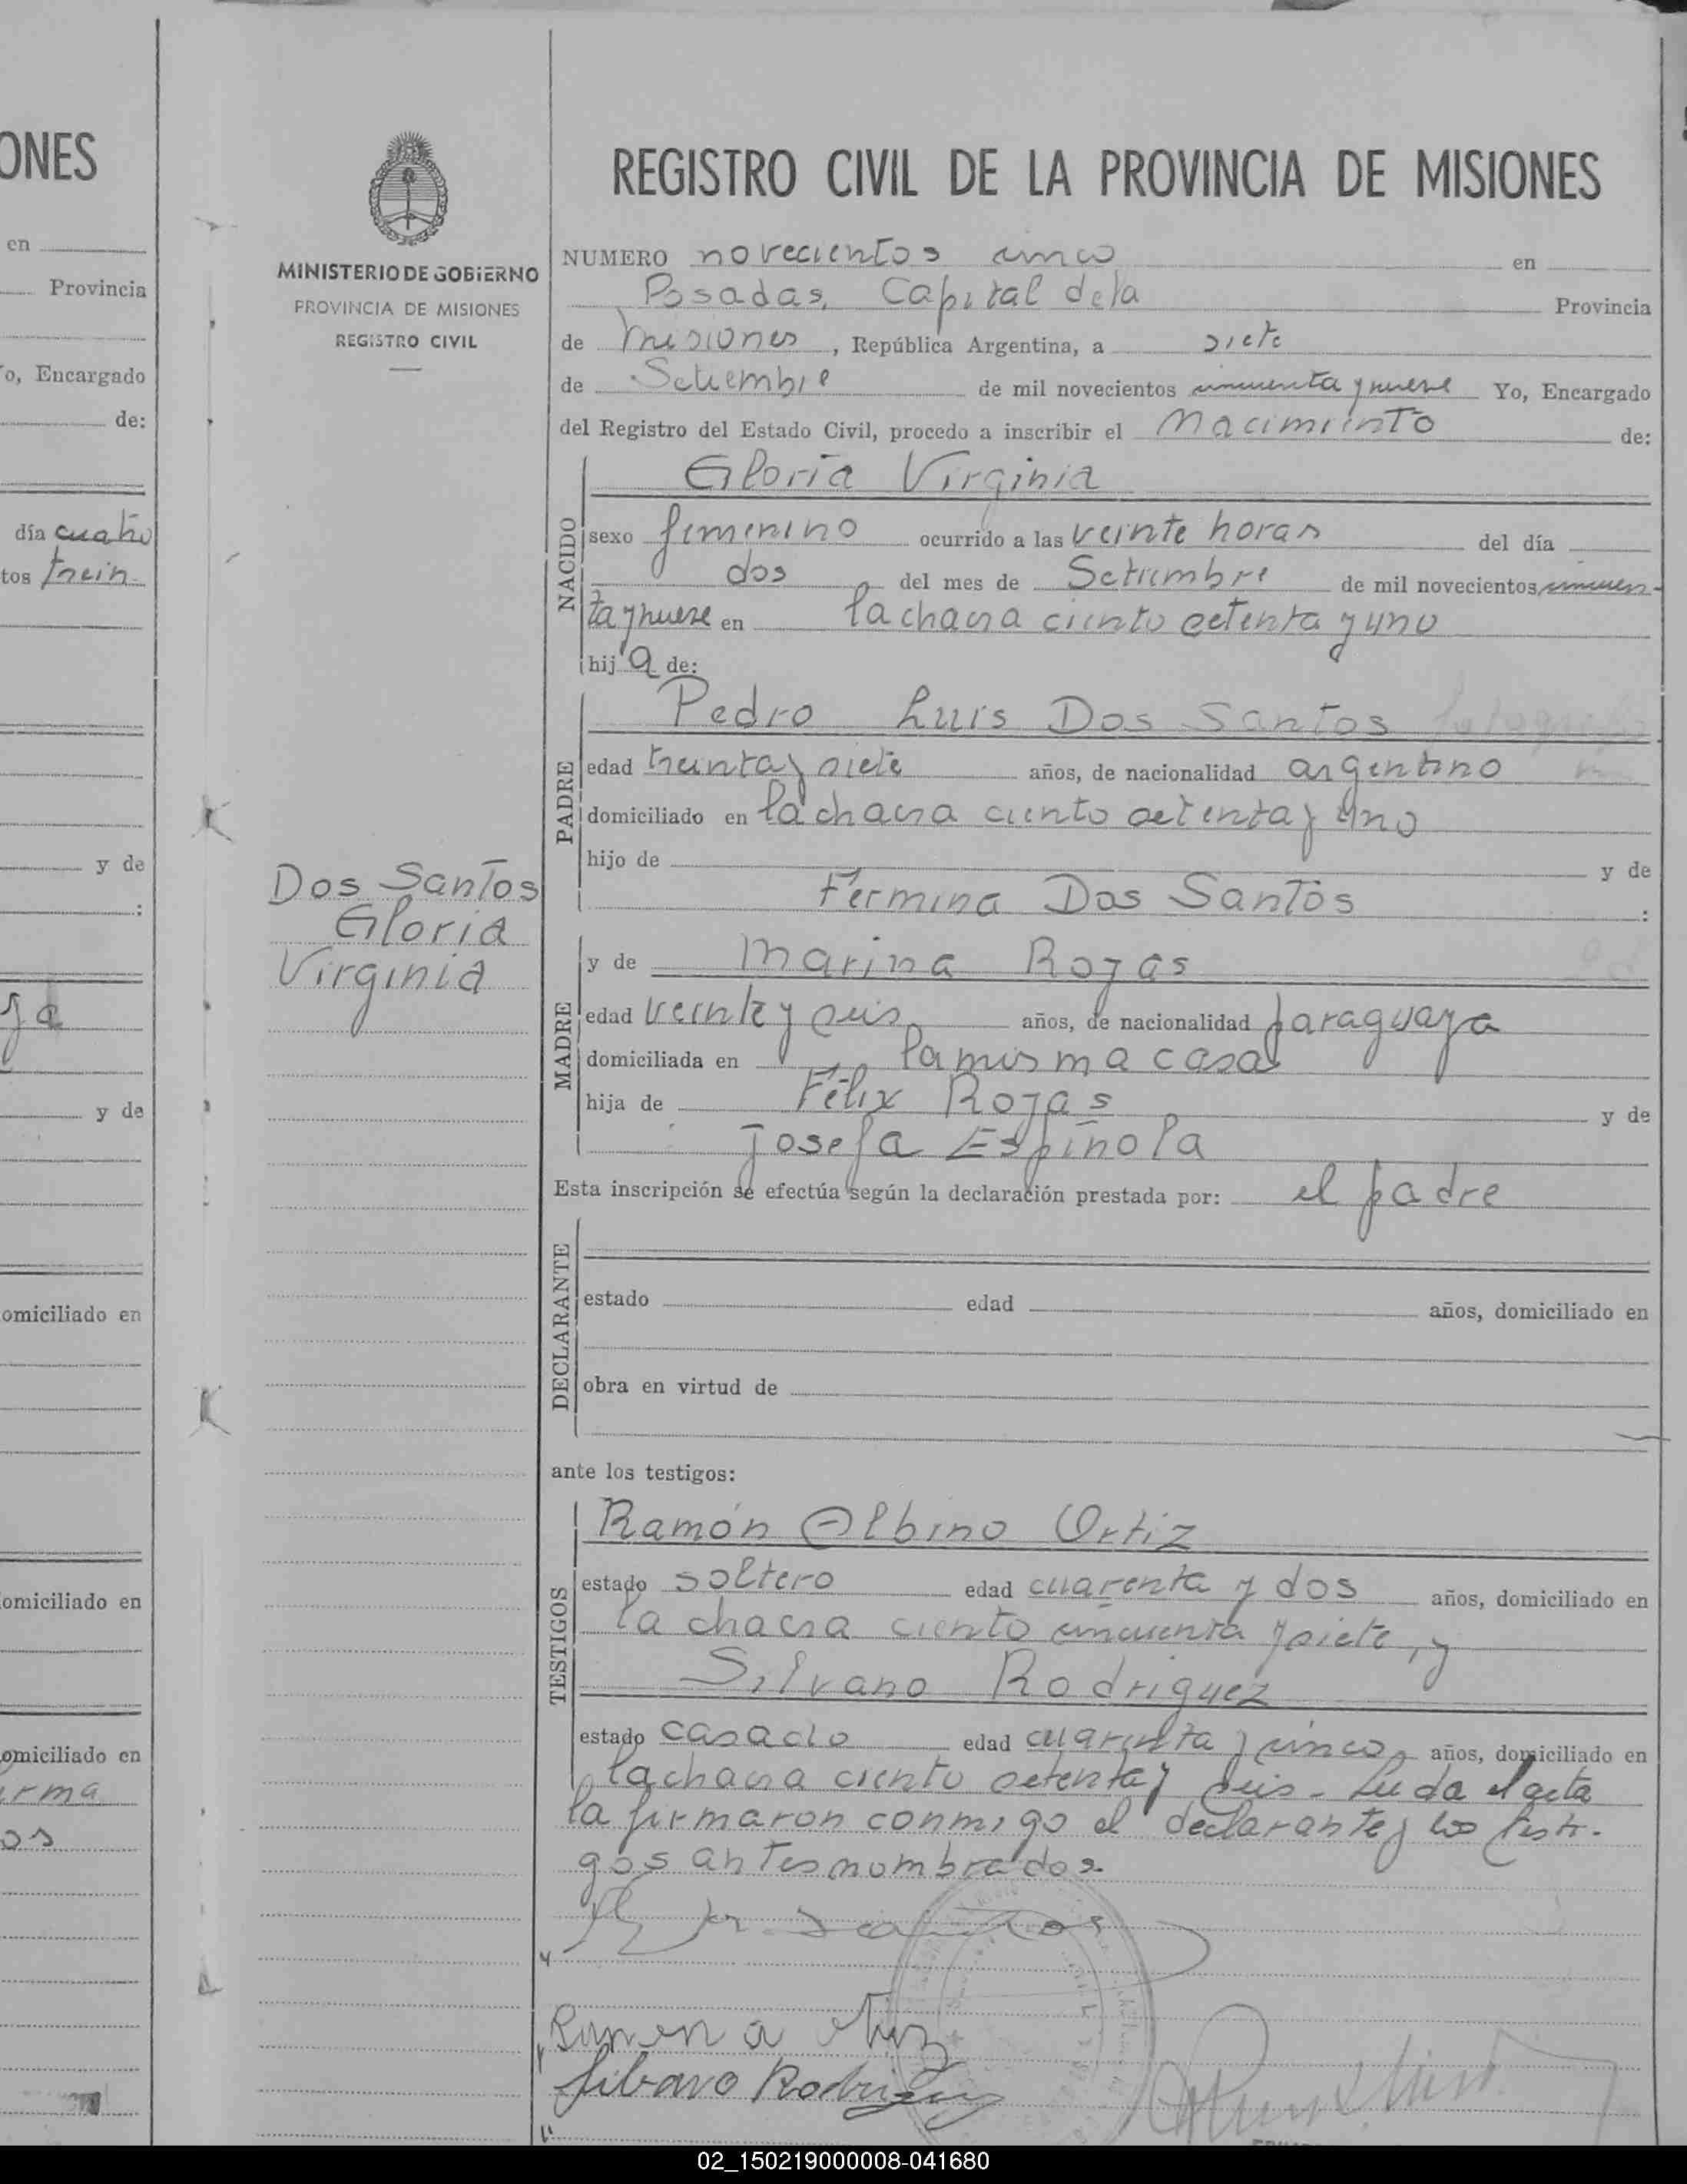 ONES
en
Provincia
o, Encargado
de:
día cuatro
tos trein
y de
:
ya
y de
omiciliado en
omiciliado en
omiciliado en
irma
os
MINISTERIO DE GOBIERNO
PROVINCIA DE MISIONES
REGISTRO CIVIL
Dos Santos
Gloria
Virginia
REGISTRO CIVIL DE LA PROVINCIA DE MISIONES
NUMERO novecientos cinco en
Posadas, Capital dela Provincia
de Misiones, República Argentina, a siete
de Setiembre de mil novecientos cincuenta y nueve Yo, Encargado
del Registro del Estado Civil, procedo a inscribir el Nacimiento de:
NACIDO
Gloria Virginia
sexo femenino ocurrido a las veinte horas del día
dos del mes de Setiembre de mil novecientos cincuen-
ta y nueve en la chacra ciento setenta y uno
hija de:
PADRE
Pedro Luis Dos Santos
edad treinta y siete años, de nacionalidad argentino
domiciliado en la chacra ciento setenta y uno
hijo de y de
Fermina Dos Santos :
MADRE
y de Marina Rojas
edad veinte y seis años, de nacionalidad paraguaya
domiciliada en la misma casa
hija de Félix Rojas y de
Josefa Espínola
Esta inscripción se efectúa según la declaración prestada por: el padre
DECLARANTE
estado edad años, domiciliado en
obra en virtud de
ante los testigos:
TESTIGOS
Ramón Albino Ortiz
estado soltero edad cuarenta y dos años, domiciliado en
la chacra ciento cincuenta y siete, y
Silvano Rodriguez
estado casado edad cuarenta y cinco años, domiciliado en
la chacra ciento setenta y seis. Leída el acta
la firmaron conmigo el declarante y los testi-
gos antes nombrados.
Santos
Ramon a Ortiz
Silvano Rodriguez
02_150219000008-041680